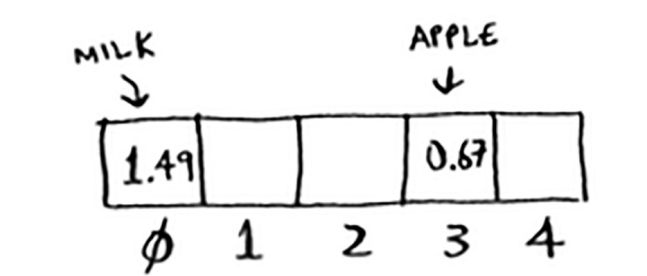 MILK APPLE
1.49 0.67
0 1 2 3 4